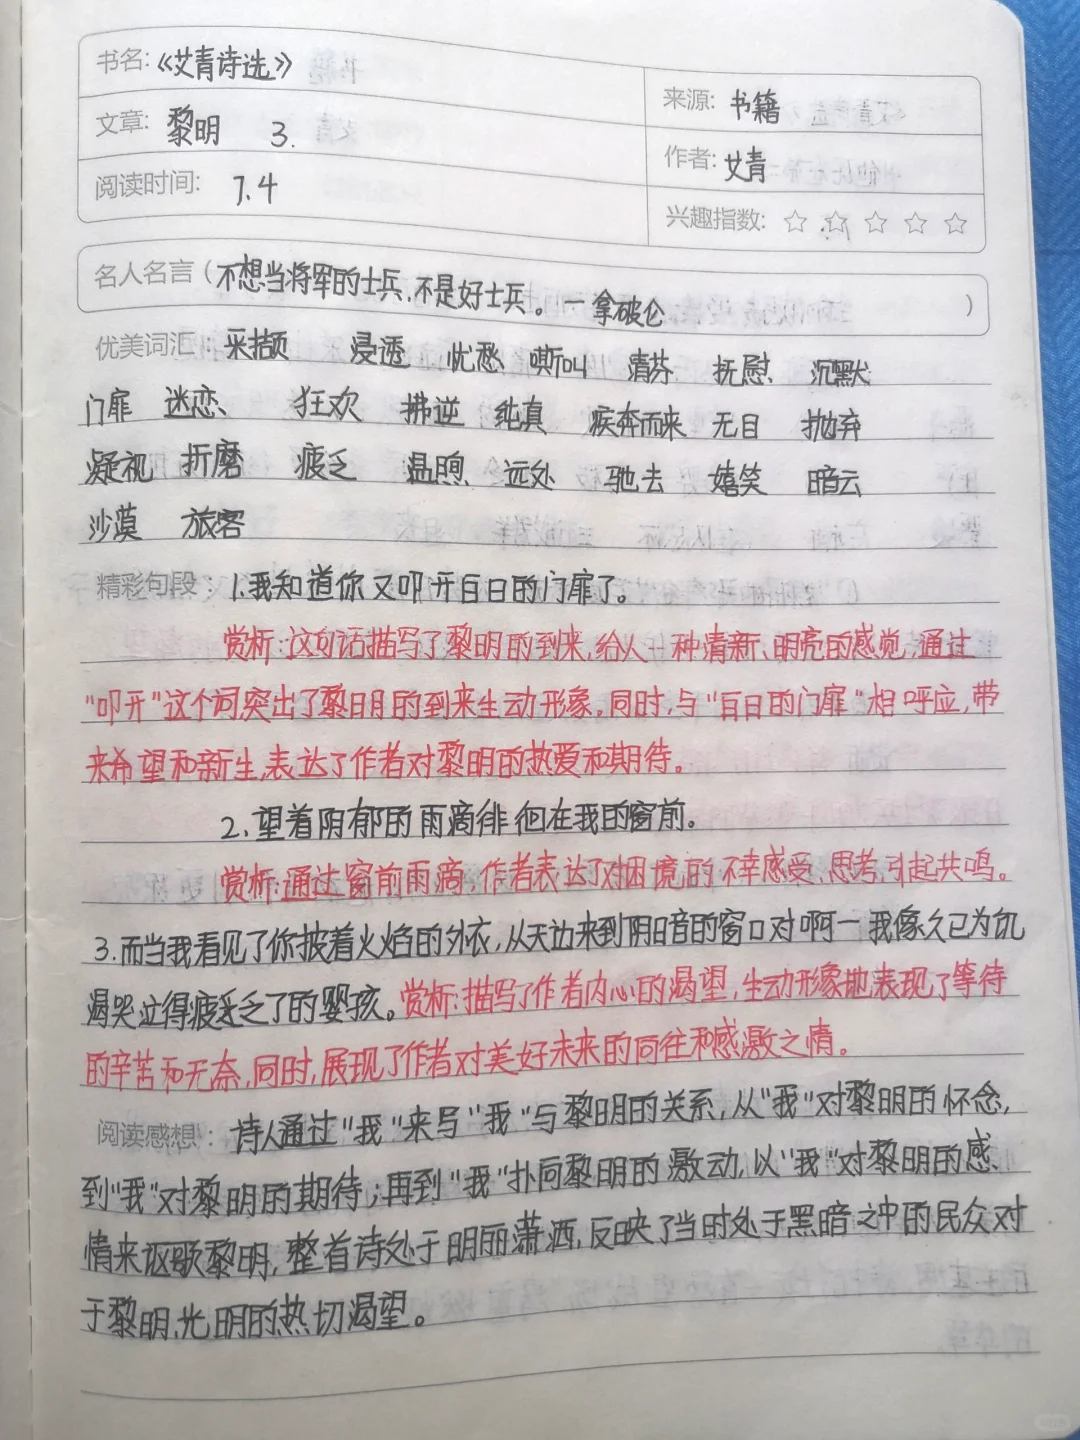 书名:《艾青诗选》
来源: 书籍
文章: 黎明 3.
作者: 艾青
阅读时间: 7.4
兴趣指数: ☆ ☆ ☆ ☆ ☆
名人名言(不想当将军的士兵,不是好士兵。一拿破仑)
优美词汇: 采撷 浸透 忧愁 嘶叫 清芬 抚慰 沉默
门扉 迷恋 狂欢 拂逆 纯真 疾奔而来 无目 抛弃
凝视 折磨 疲乏 温煦 远处 驰去 嬉笑 暗云
沙漠 旅客
精彩句段: 1.我知道你又叩开白日的门扉了。
赏析:这句话描写了黎明的到来,给人一种清新、明亮的感觉,通过
"叩开"这个词突出了黎明的到来生动形象。同时,与"白日的门扉"相呼应,带
来希望和新生,表达了作者对黎明的热爱和期待。
2.望着阴郁的雨滴徘徊在我的窗前。
赏析:通过窗前雨滴,作者表达了对困境的不幸感受、思考,引起共鸣。
3.而当我看见了你披着火焰的外衣,从天边来到阴暗的窗口时啊一我像久已为饥
渴哭泣得疲乏了的婴孩。赏析:描写了作者内心的渴望,生动形象地表现了等待
的辛苦和无奈,同时,展现了作者对美好未来的向往和感激之情。
阅读感想: 诗人通过"我"来写"我"与黎明的关系,从"我"对黎明的怀念,
到"我"对黎明的期待;再到"我"扑向黎明的激动,以"我"对黎明的感
情来讴歌黎明,整首诗处于明丽潇洒,反映了当时处于黑暗之中的民众对
于黎明、光明的热切渴望。